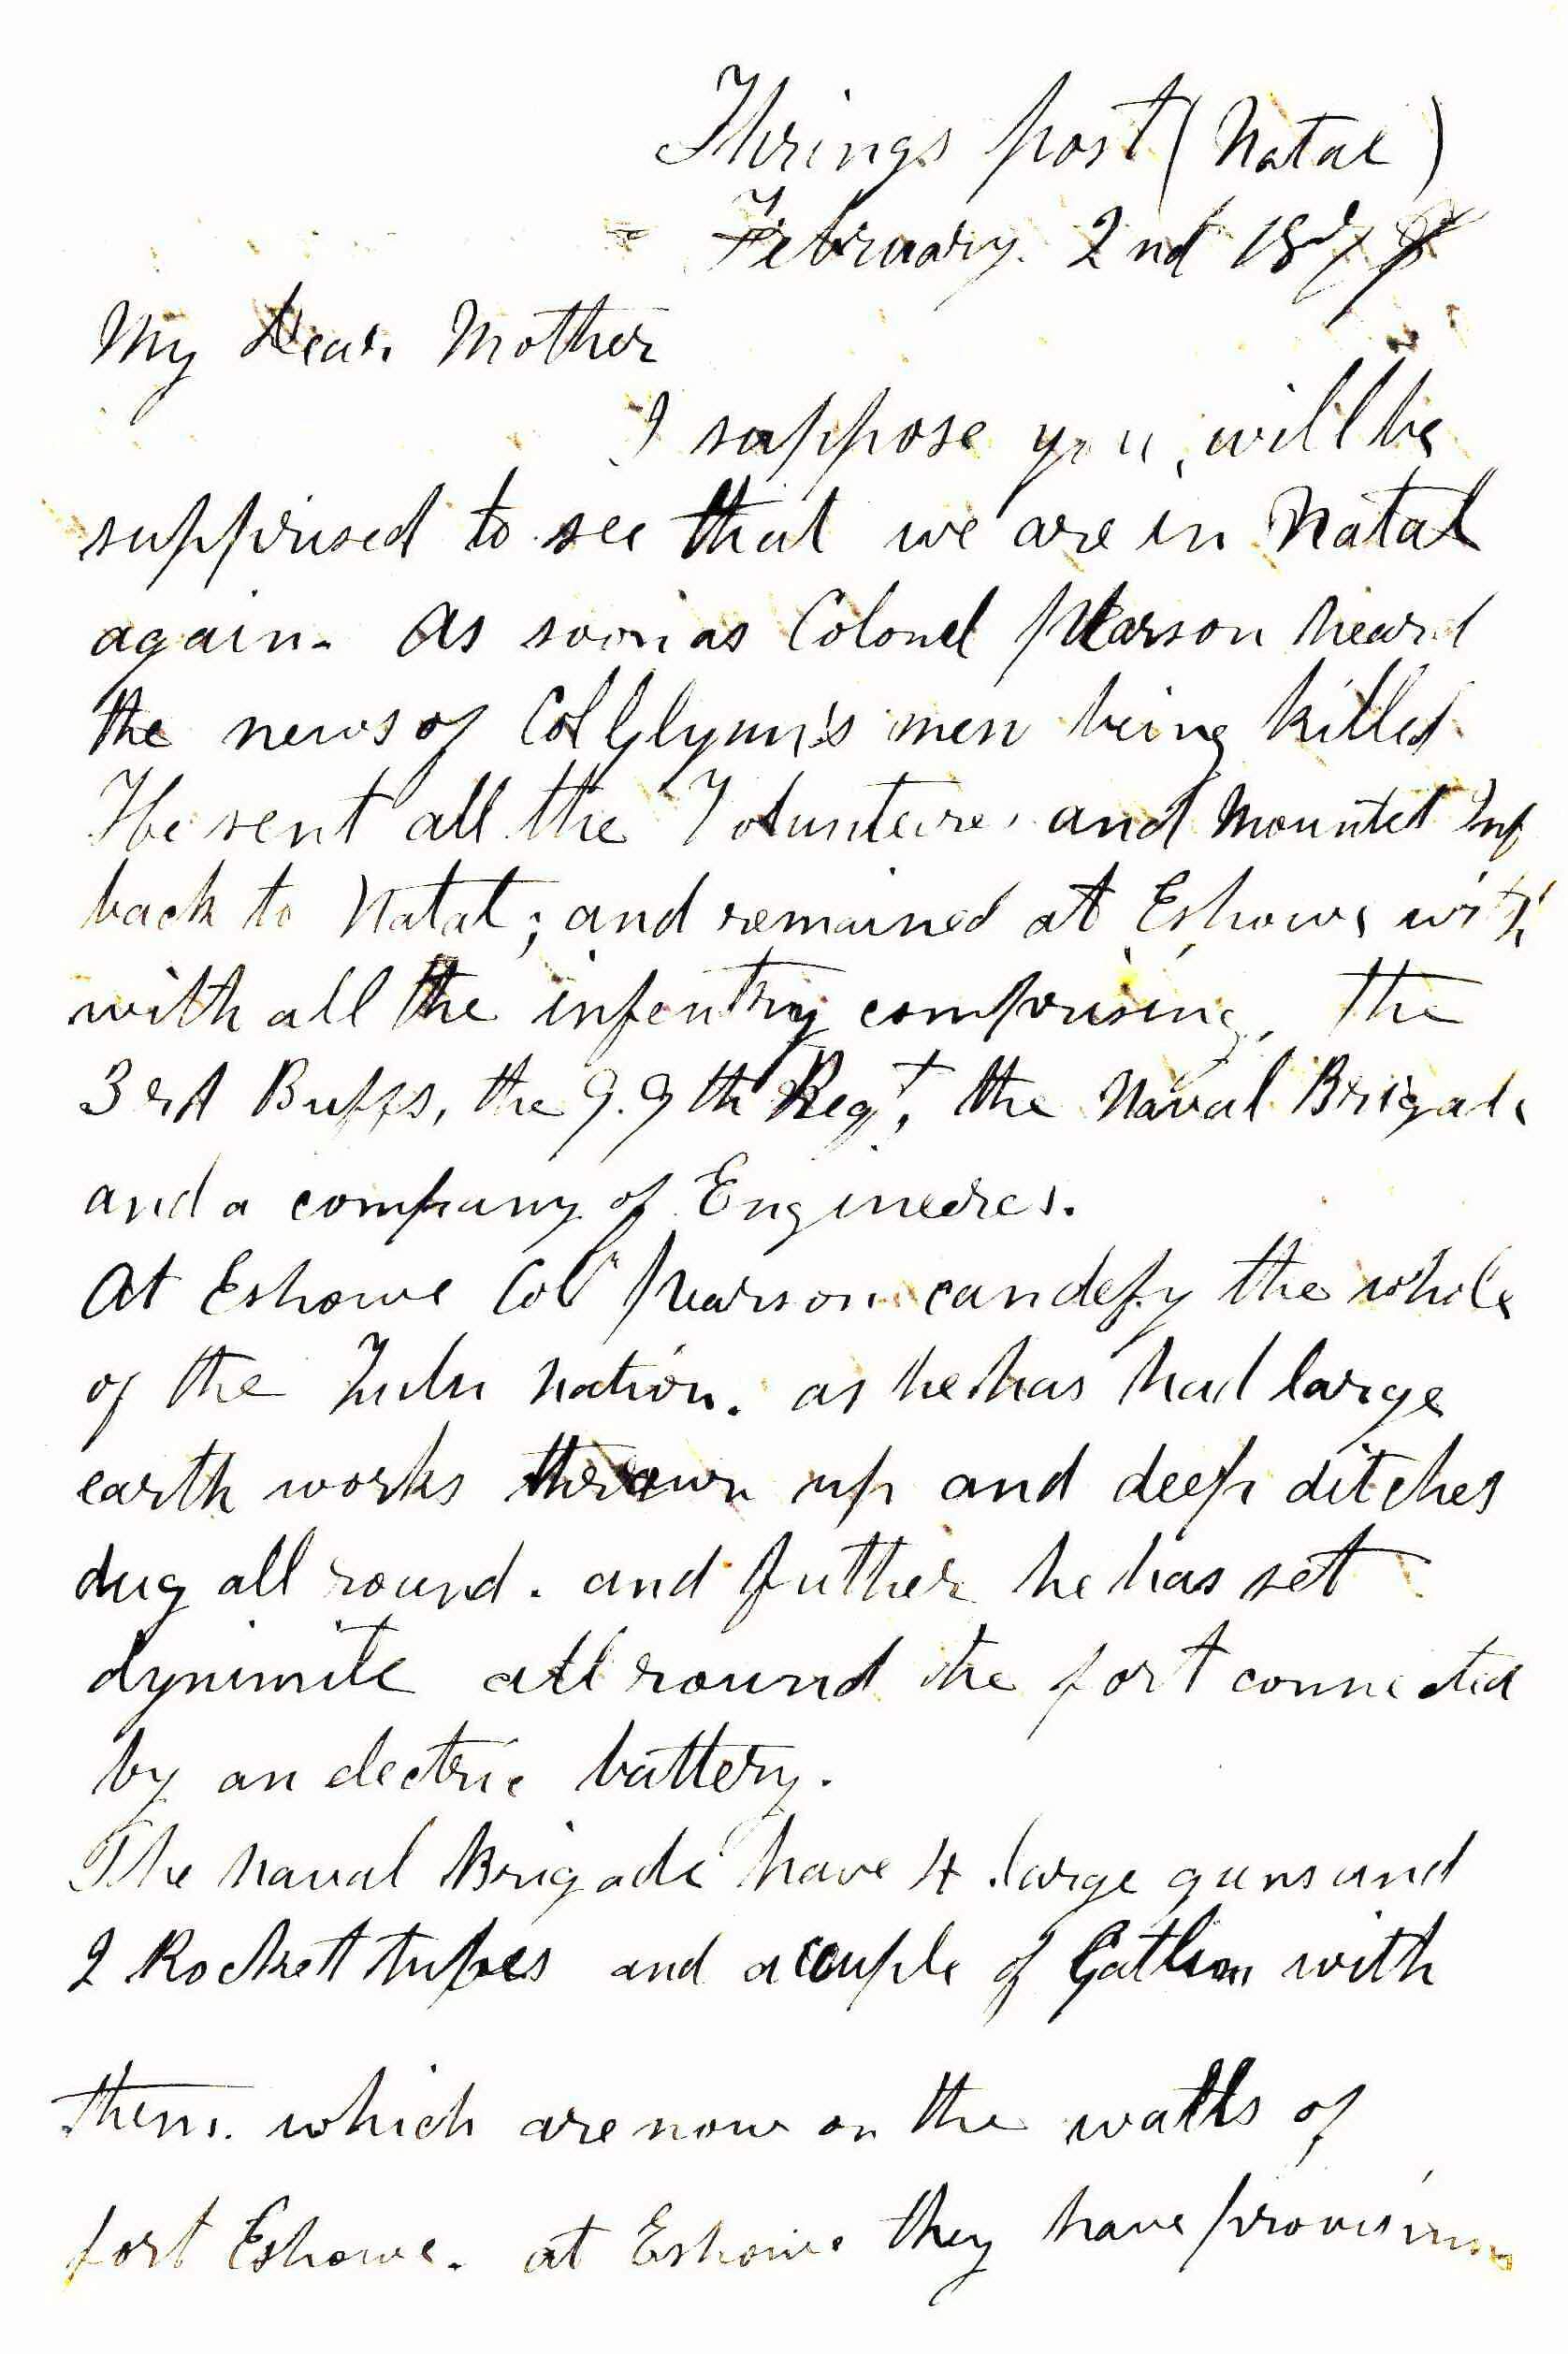 Thrings post (Natal)
February. 2nd 187
My Dear Mother
I suppose you will be
supprised to see that we are in Natal
again. As soon as Colonel Pearson heard
the news of Col Glynn's men being killed
He sent all the Volunteires and Mounted Inf
back to Natal; and remained at Eshowe with
with all the infentry comprising, the
3rd Buffs, the 9.9th Regt, the Naval Brigade
and a company of Engineeres.
At Eshowe Col Pearson can defy the whole
of the Zulu nation. as he has had large
earth works thrown up and deep ditches
dug all round. and futher he has set
dynimite all round the fort connected
by an electric battery.
The Naval Brigade have 4 large guns and
2 Rockett tubes and a couple of with
them. which are now on the walls of
fort Eshowe. at Eshowe they have provisions